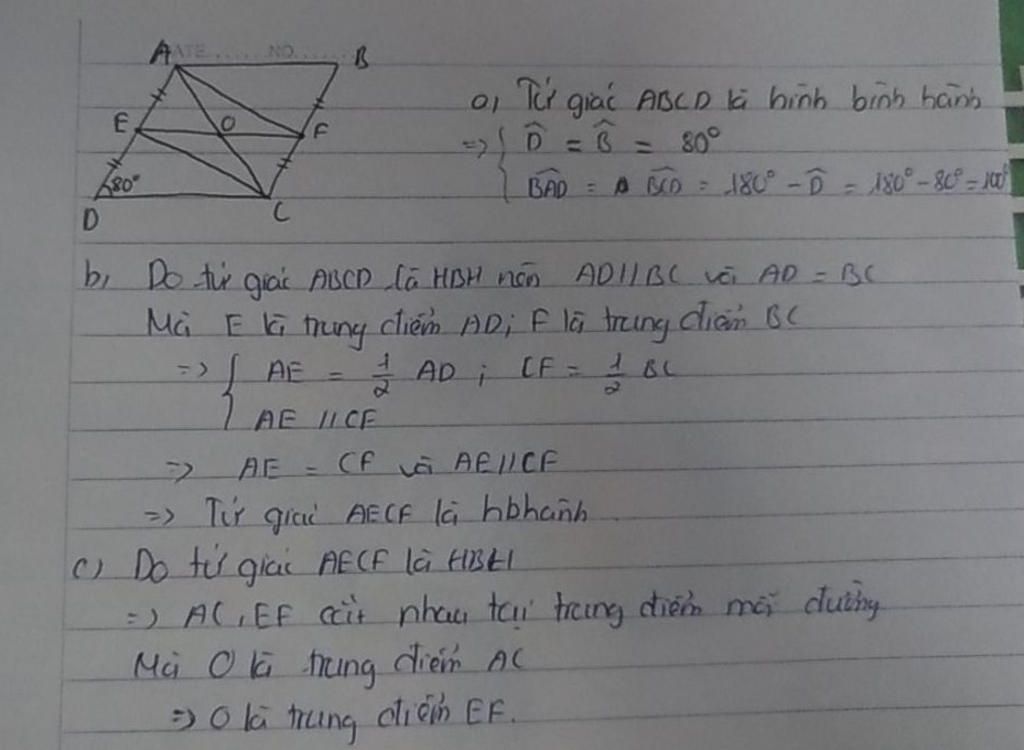 DATE ...... NO. ......
A B
E O F
80°
D C
a, Tứ giác ABCD là hình bình hành
=> { D̂ = B̂ = 80°
B͡AD = B͡CD = 180° - D̂ = 180° - 80° = 100°
b, Do tứ giác ABCD là HBH nên AD // BC và AD = BC
Mà E là trung điểm AD; F là trung điểm BC
=> { AE = 1/2 AD ; CF = 1/2 BC
AE // CF
=> AE = CF và AE // CF
=> Tứ giác AECF là hbhành.
c) Do tứ giác AECF là HBH
=> AC, EF cắt nhau tại trung điểm mỗi đường
Mà O là trung điểm AC
=> O là trung điểm EF.